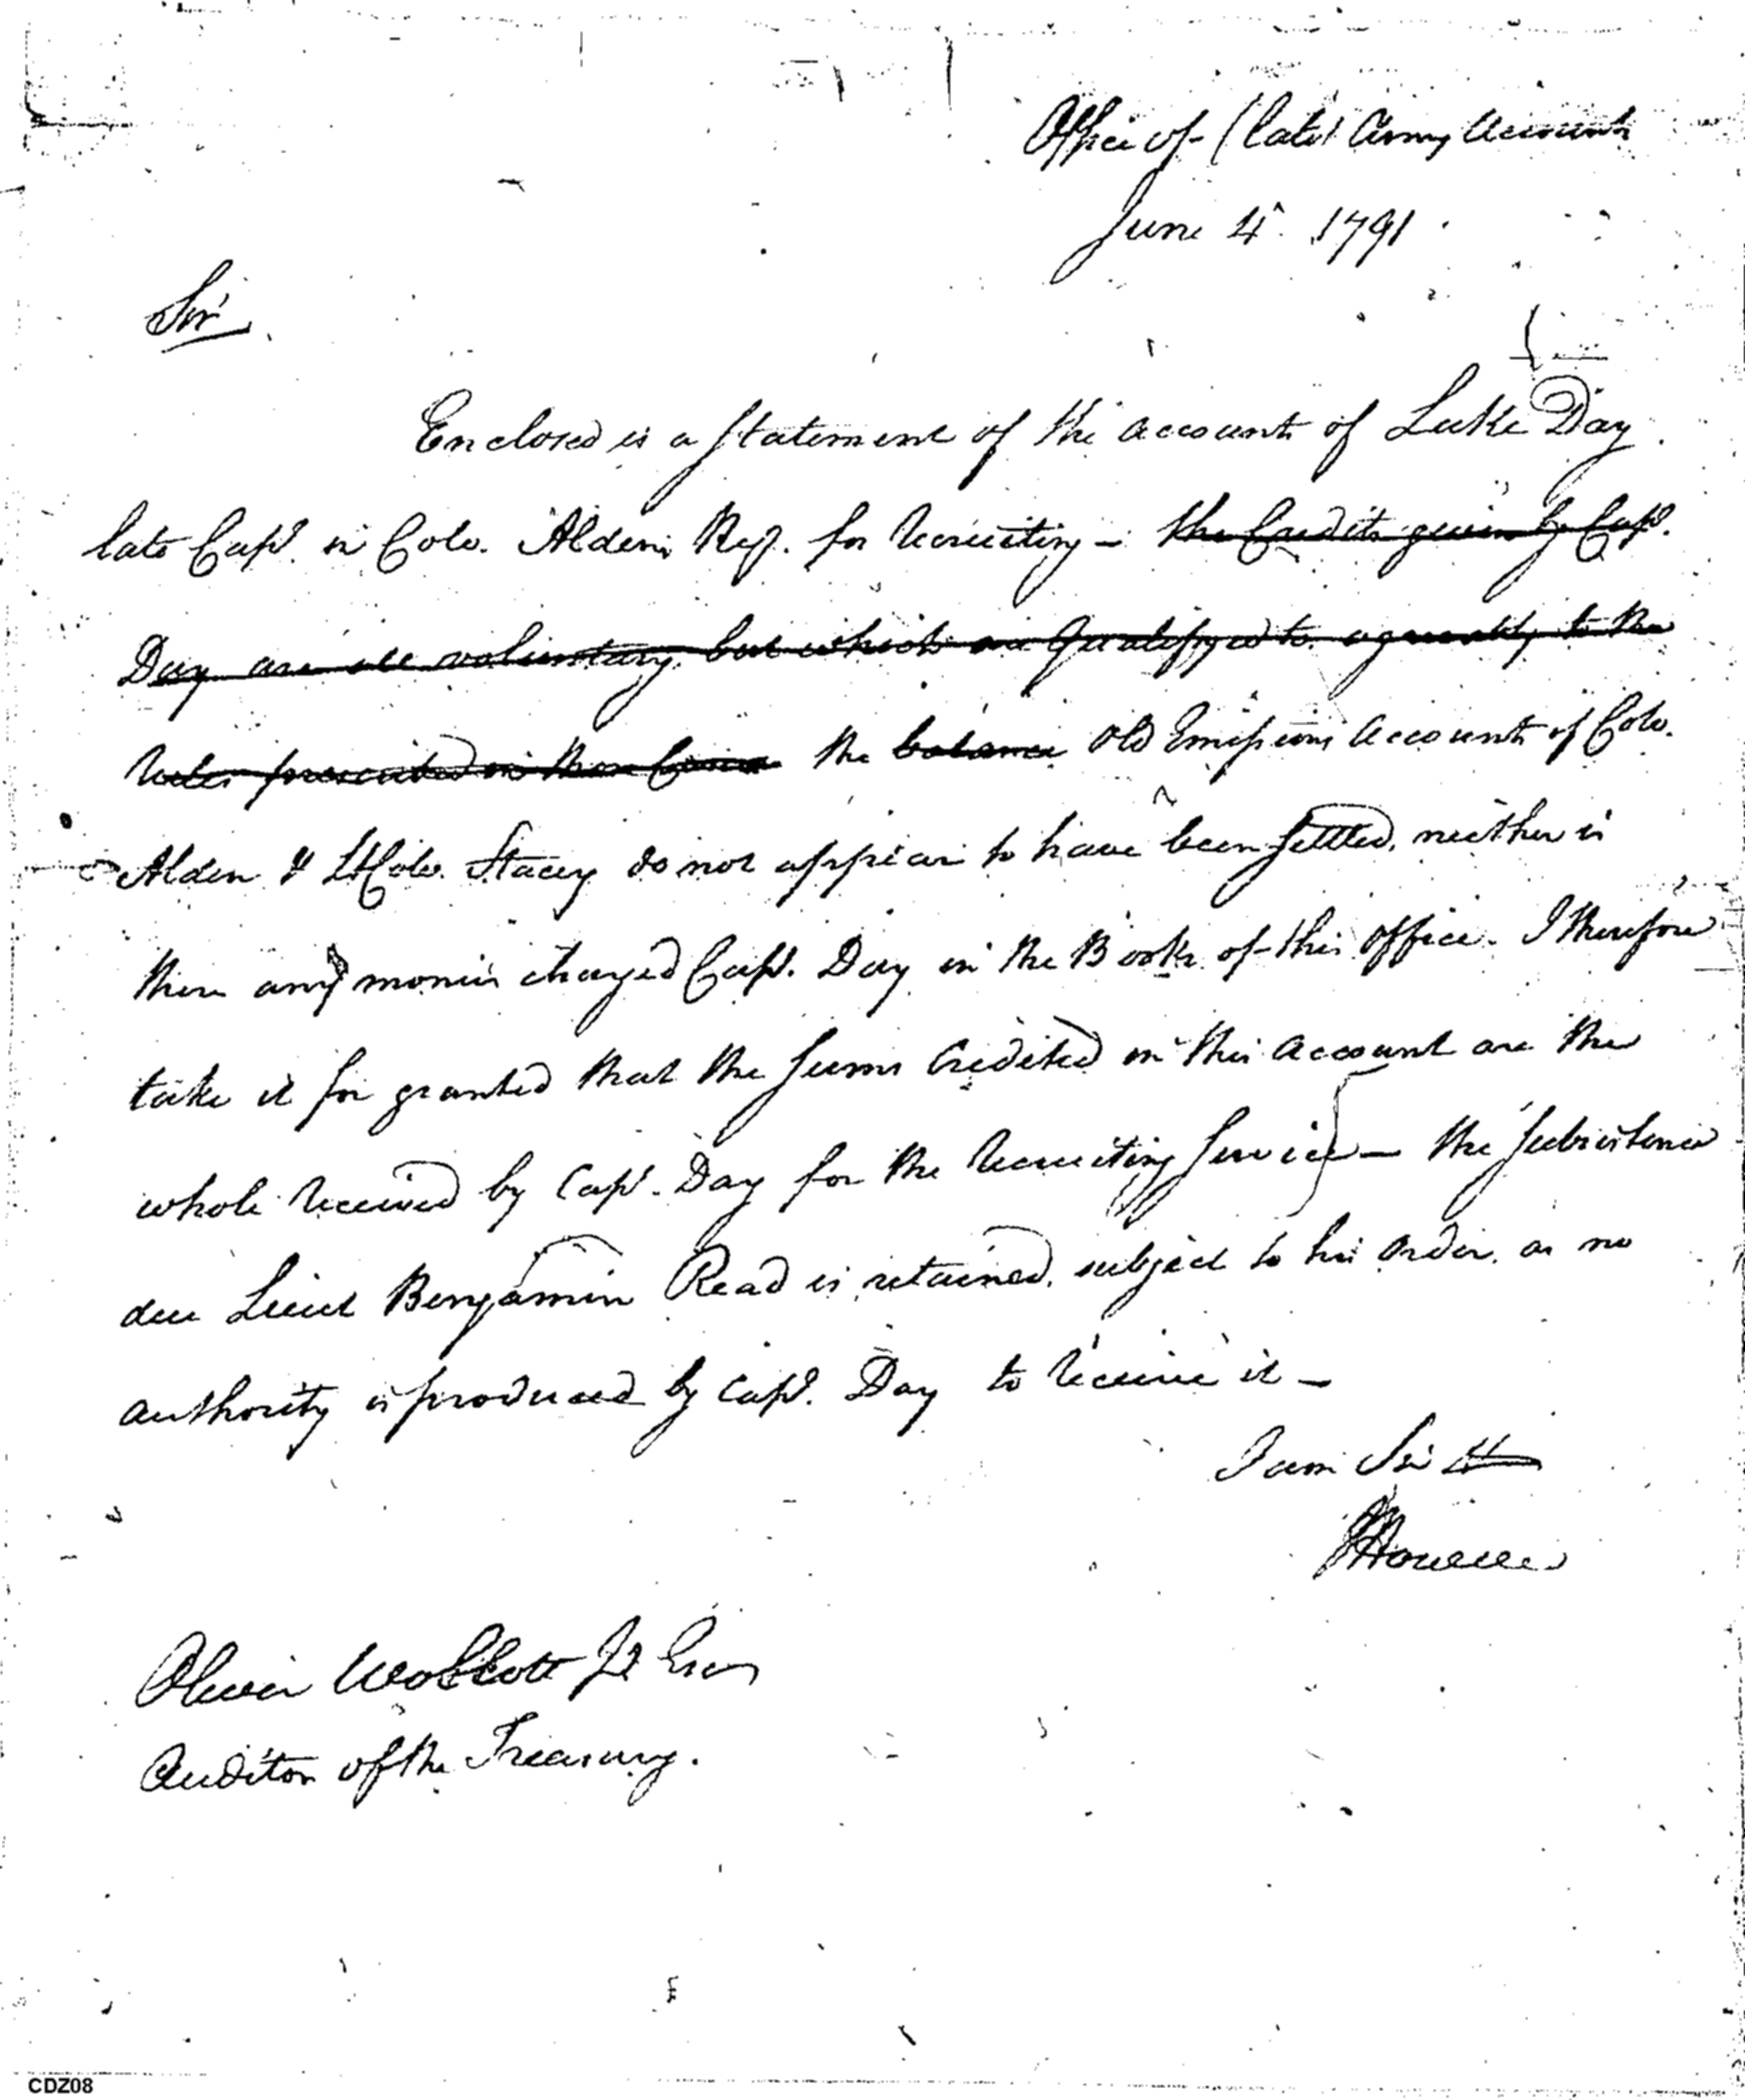 Office of (late) Army Accounts
June 4th. 1791
Sir
Enclosed is a statement of the accounts of Luke Day
late Capt. in Colo. Aldens Regt. for recruiting – the Credits given by Capt.
Day are all voluntary but which are Qualifyed to agreeably to the
rules prescribed in those Cases the balance Old Emissions Accounts of Colo.
Alden & Lt Colo. Stacey do not appear to have been settled, neither is
there any monies charged Capt. Day in the Books of this office. I therefore
take it for granted that the sums Credited in this Account are the
whole received by Capt. Day for the recruiting Service – the subsistence
due Lieut Benjamin Read is retained, subject to his order, as no
authority is produced by Capt. Day to receive it –
I am Sir
JHowell
Oliver Wolcott Jr Esqr
Auditor of the Treasury.
CDZ08